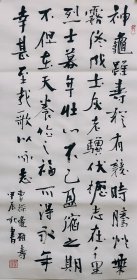 神龜雖壽猶有竟時騰蛇乘
霧終為土灰老驥伏櫪志在千里
烈士暮年壯心不已盈縮之期
不但在天養怡之福可得永年
幸甚至哉歌以詠志
曹操龜雖壽
甲辰秋書